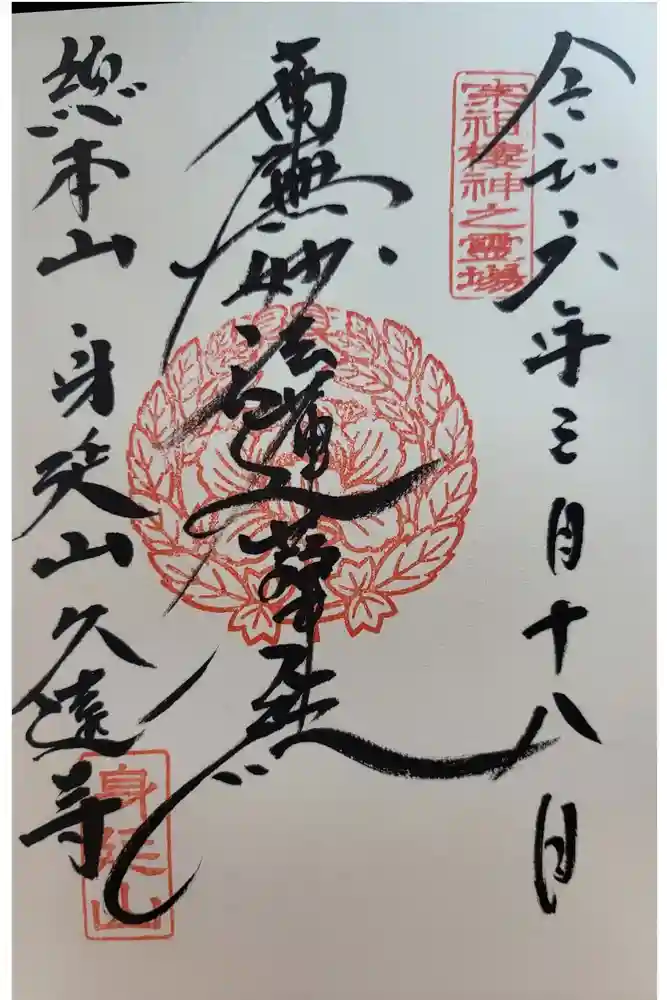 令和六年三月十八日
宗祖棲神之霊場
南無妙法蓮華経
総本山 身延山 久遠寺
身延山